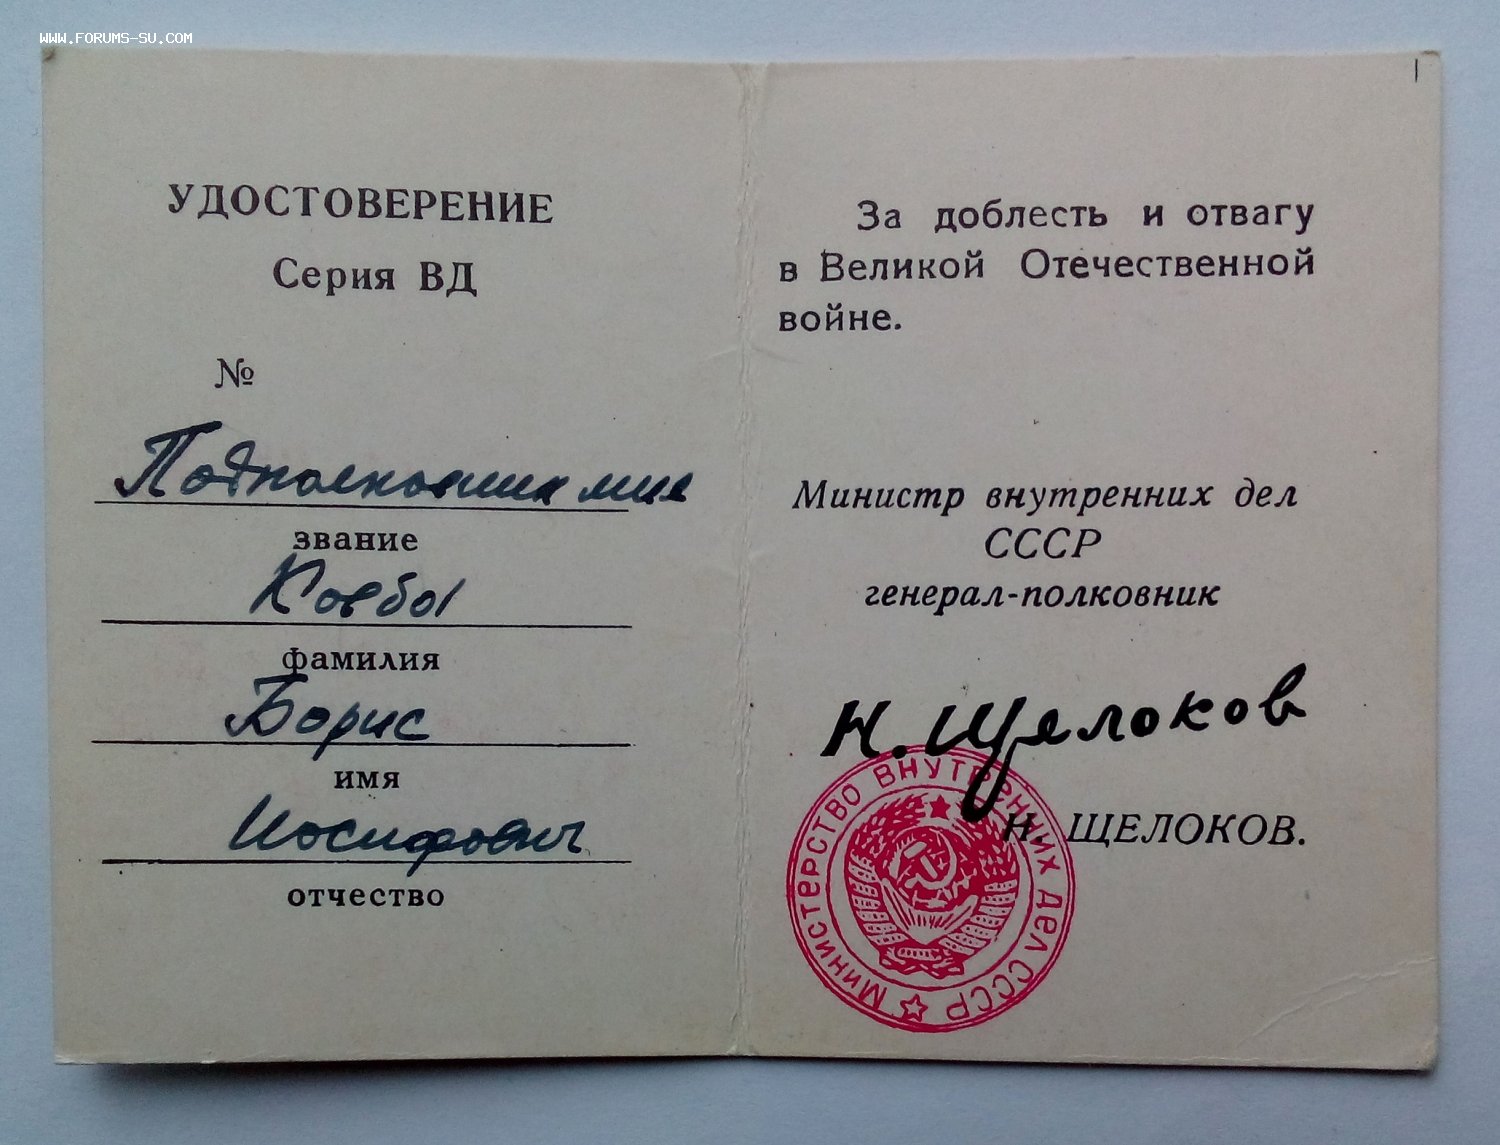 WWW.FORUMS-SU.COM
УДОСТОВЕРЕНИЕ
Серия ВД
№
Подполковника мил
звание
фамилия
Борис
имя
Иосифович
отчество
За доблесть и отвагу
в Великой Отечественной
войне.
Министр внутренних дел
СССР
генерал-полковник
Н. Щелоков
Н. ЩЕЛОКОВ.
МИНИСТЕРСТВО ВНУТРЕННИХ ДЕЛ СССР